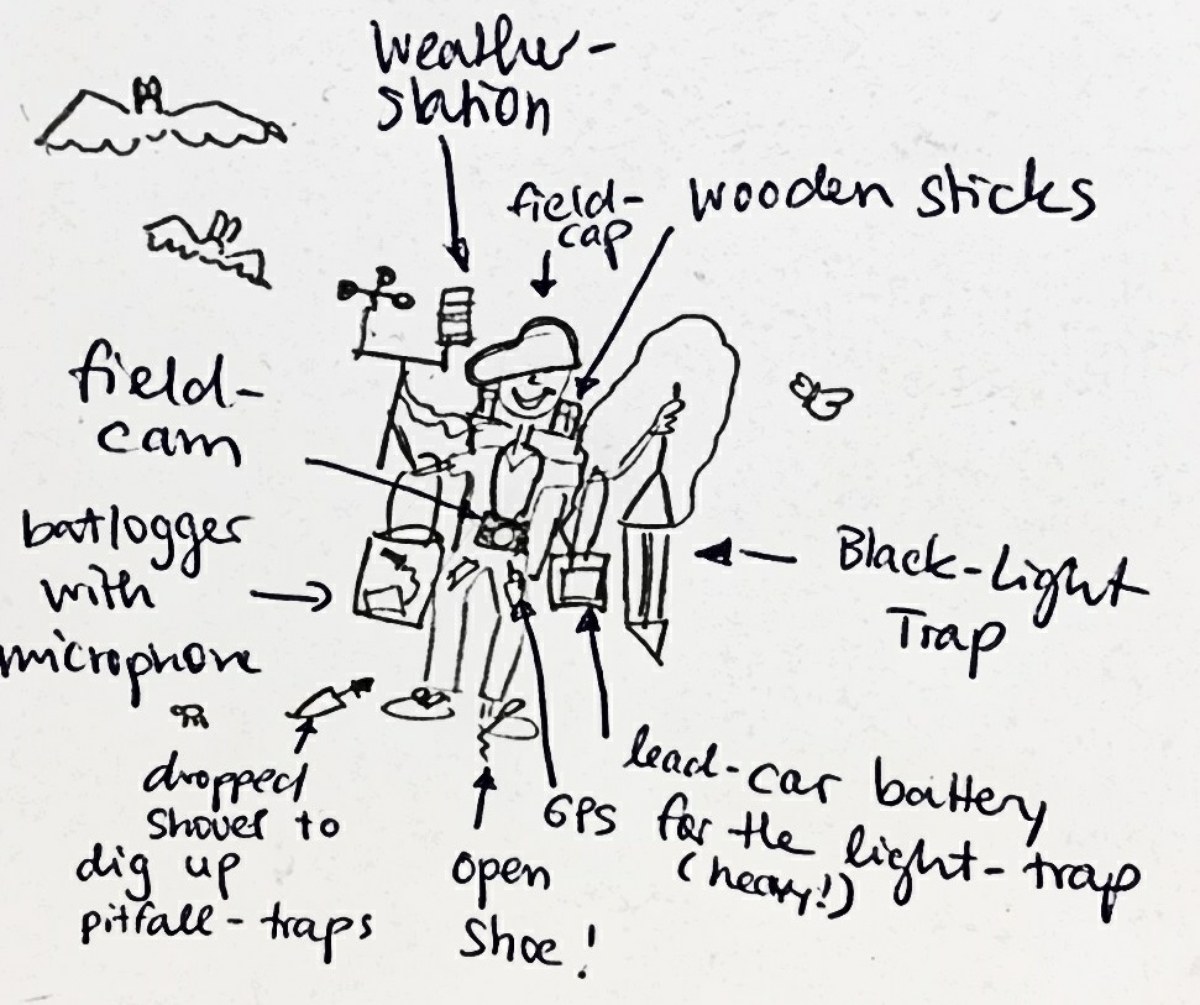 Weather-
station
field-
cap
wooden sticks
field-
cam
batlogger
with
microphone
Black-Light
Trap
dropped
shovel to
dig up
pitfall-traps
open
shoe!
GPS
lead-car battery
for the light-trap
(heavy!)